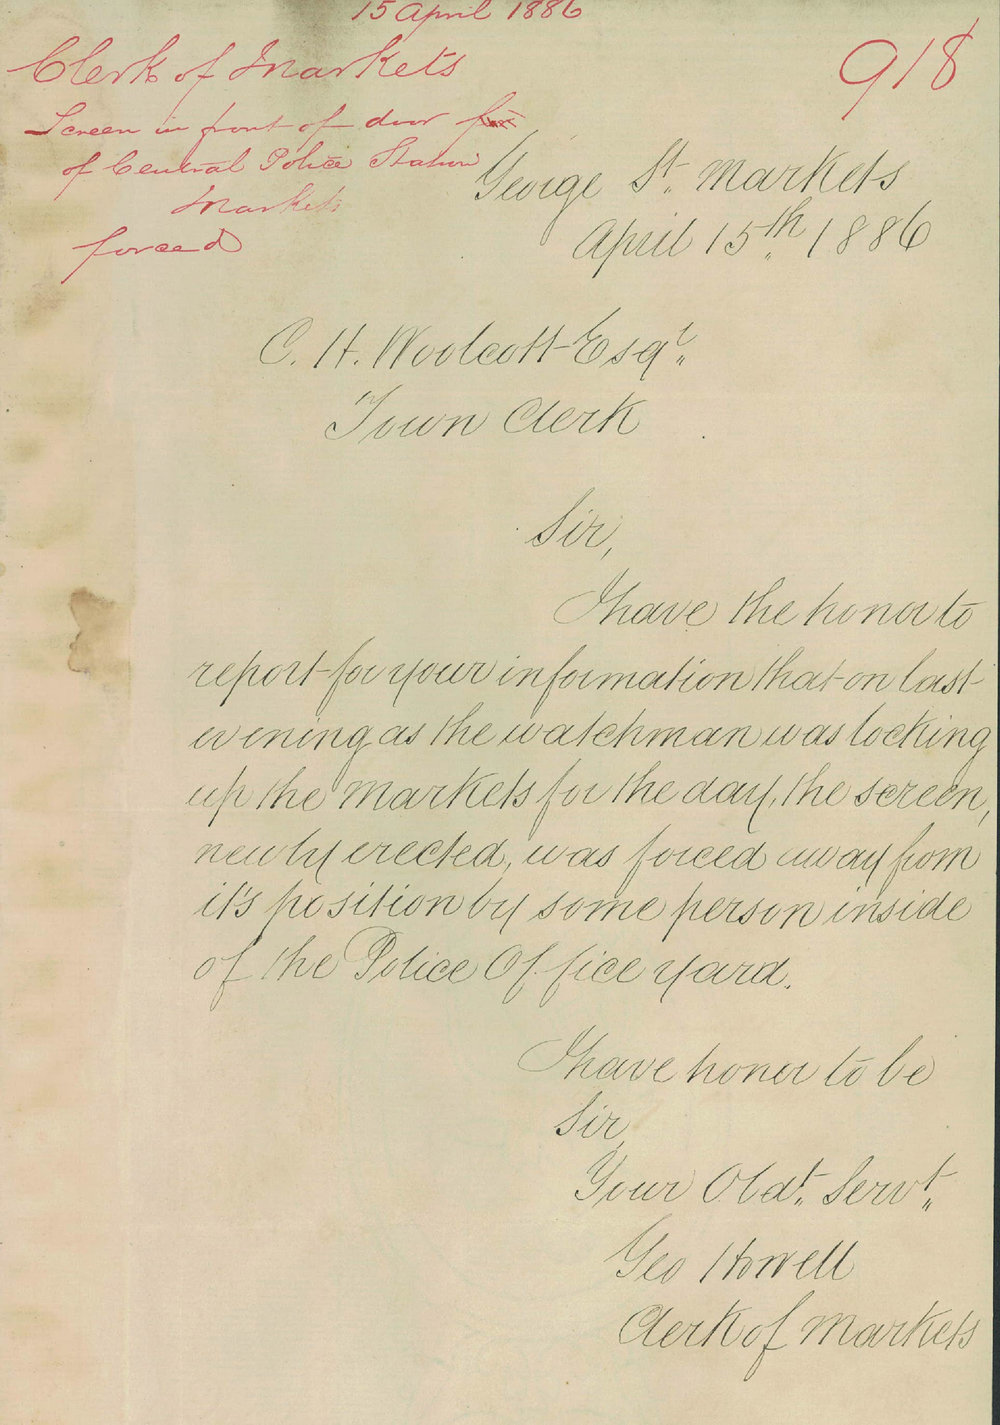 15 April 1886
918
Clerk of Markets
Screen in front of door
of Central Police Station
Markets
forced
George St. Markets
April 15th 1886
C. H. Woolcott Esqr.
Town Clerk
Sir,
I have the honor to
report for your information that on last
evening as the watchman was locking
up the Markets for the day, the screen,
newly erected, was forced away from
it's position by some person inside
of the Police Office yard.
I have honor to be
Sir,
Your Obdt. Servt.
Geo Howell
Clerk of Markets